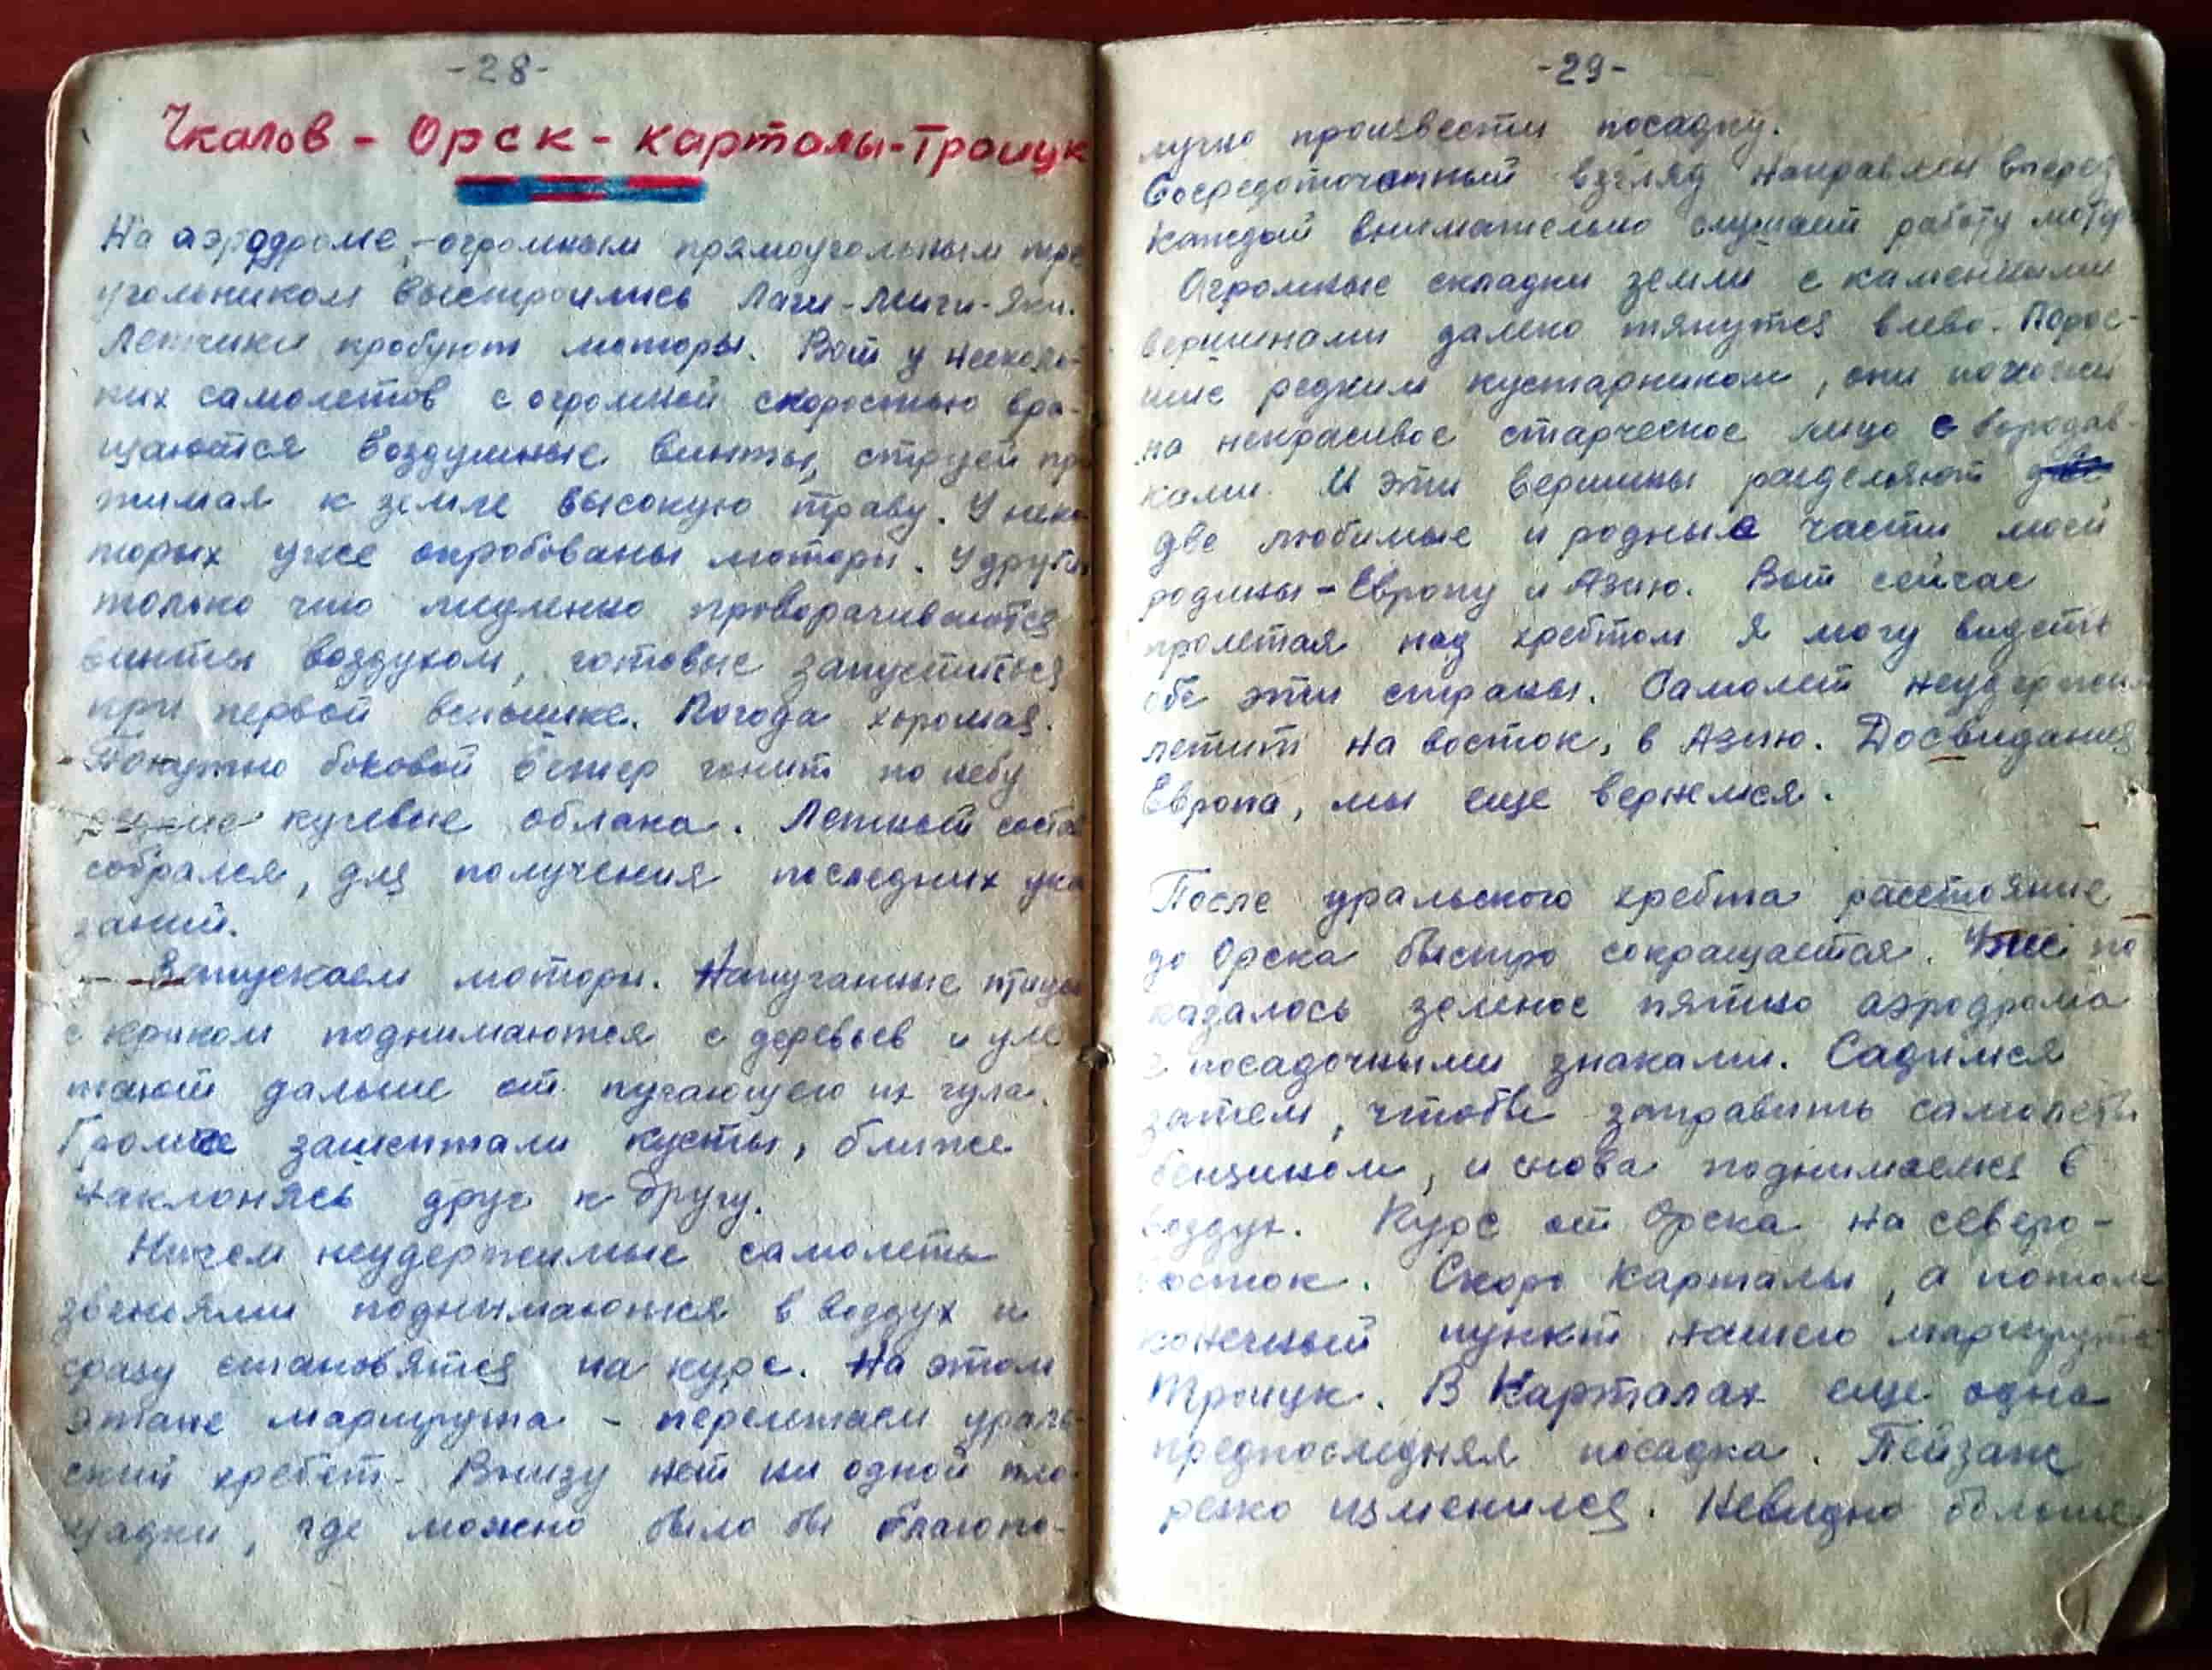 -28-
Чкалов - Орск - Карталы-Троицк
На аэродроме, - огромным прямоугольным
угольником выстроились Лаги-Миги-Яки.
Летчики пробуют моторы. Вот у несколь-
ких самолетов с огромной скоростью вра-
щаются воздушные винты, струей при
жимая к земле высокую траву. У неко
торых уже опробованы моторы. У других
только что медленно проворачиваются
винты воздухом, готовые запуститься
при первой вспышке. Погода хорошая.
Попутно боковой ветер гонит по небу
редкие кучевые облака. Летный состав
собрался, для получения последних ука
заний.
Запускаем моторы. Напуганные птицы
с криком поднимаются с деревьев и уле
тают дальше от пугающего их гула.
Громче зашептали кусты, ближе
наклонясь друг к другу.
Ничем неудержимые самолеты
звеньями поднимаются в воздух и
сразу становятся на курс. На этом
этапе маршрута - перелетаем ураль-
ский хребет. Внизу нет ни одной пло-
щадки, где можно было бы благопо-
-29-
лучно произвести посадку.
Сосредоточенный взгляд направлен вперед
Каждый внимательно слушает работу мотор
Огромные складки земли с каменными
вершинами далеко тянутся влево. Порос-
шие редким кустарником, они похожи
на некрасивое старческое лицо с бородав-
ками. И эти вершины разделяют две
две любимые и родные части моей
родины - Европу и Азию. Вот сейчас
пролетая над хребтом я могу видеть
обе эти страны. Самолет неудержим
летит на восток, в Азию. Досвидания
Европа, мы еще вернемся.
После уральского хребта расстояние
до Орска быстро сокращается. Уже по
казалось зеленое пятно аэродрома
с посадочными знаками. Садимся
затем, чтобы заправить самолеты
бензином, и снова поднимаемся в
воздух. Курс от Орска на северо-
восток. Скоро Карталы, а потом
конечный пункт нашего маршрута
Троицк. В Карталах еще одна
предпоследняя посадка. Пейзаж
резко изменился. Невидно больше